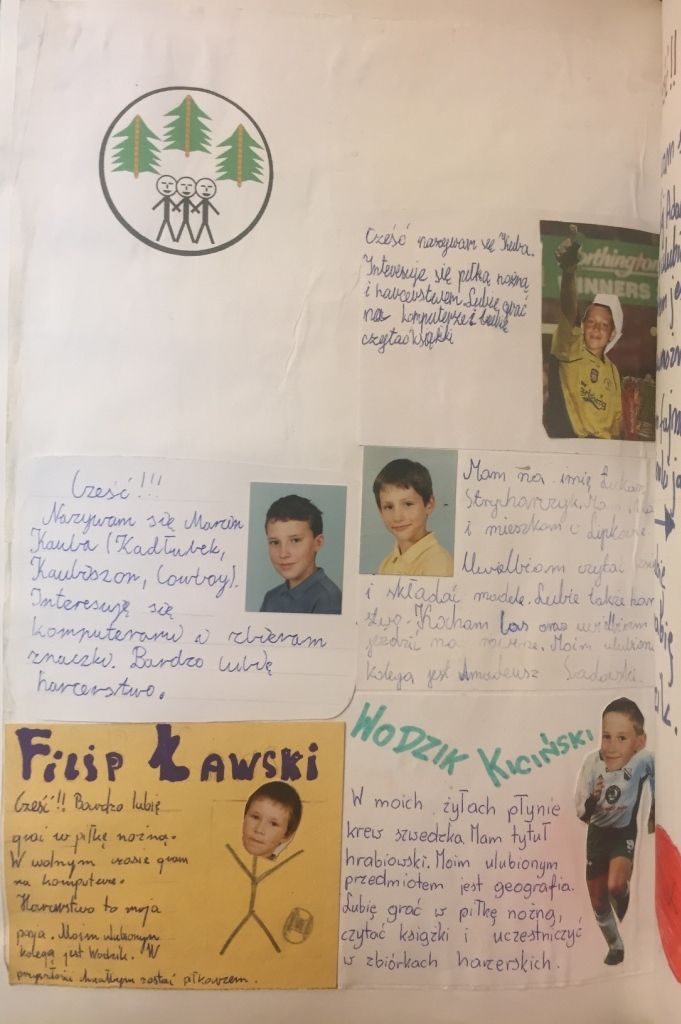 Cześć nazywam się Kuba.
Interesuje się piłką nożną
i harcerstwem. Lubię grać
na komputerze i lubię
czytać książki
Worthington
WINNERS
Cześć!!!
Nazywam się Marcin
Kauba (Kadłubek,
Kaubiszon, Cowboy).
Interesuję się
komputerami i zbieram
znaczki. Bardzo lubię
harcerstwo.
Mam na imię Łukasz
Strycharzyk. Mam
i mieszkam w Lipkowie.
Uwielbiam czytać
i składać modele. Lubię także har
stwo. Kocham las oraz uwielbiam
jeździć na rowerze. Moim ulubion
kolegą jest Amadeusz Sadowski.
FILIP ŁAWSKI
Cześć!! Bardzo lubię
grać w piłkę nożną.
W wolnym czasie gram
na komputerze.
Harcerstwo to moja
pasja. Moim ulubionym
kolegą jest Wodzik. W
przyszłości chciałbym zostać piłkarzem.
WODZIK KICIŃSKI
W moich żyłach płynie
krew szwedzka. Mam tytuł
hrabiowski. Moim ulubionym
przedmiotem jest geografia.
Lubię grać w piłkę nożną,
czytać książki i uczestniczyć
w zbiórkach harcerskich.